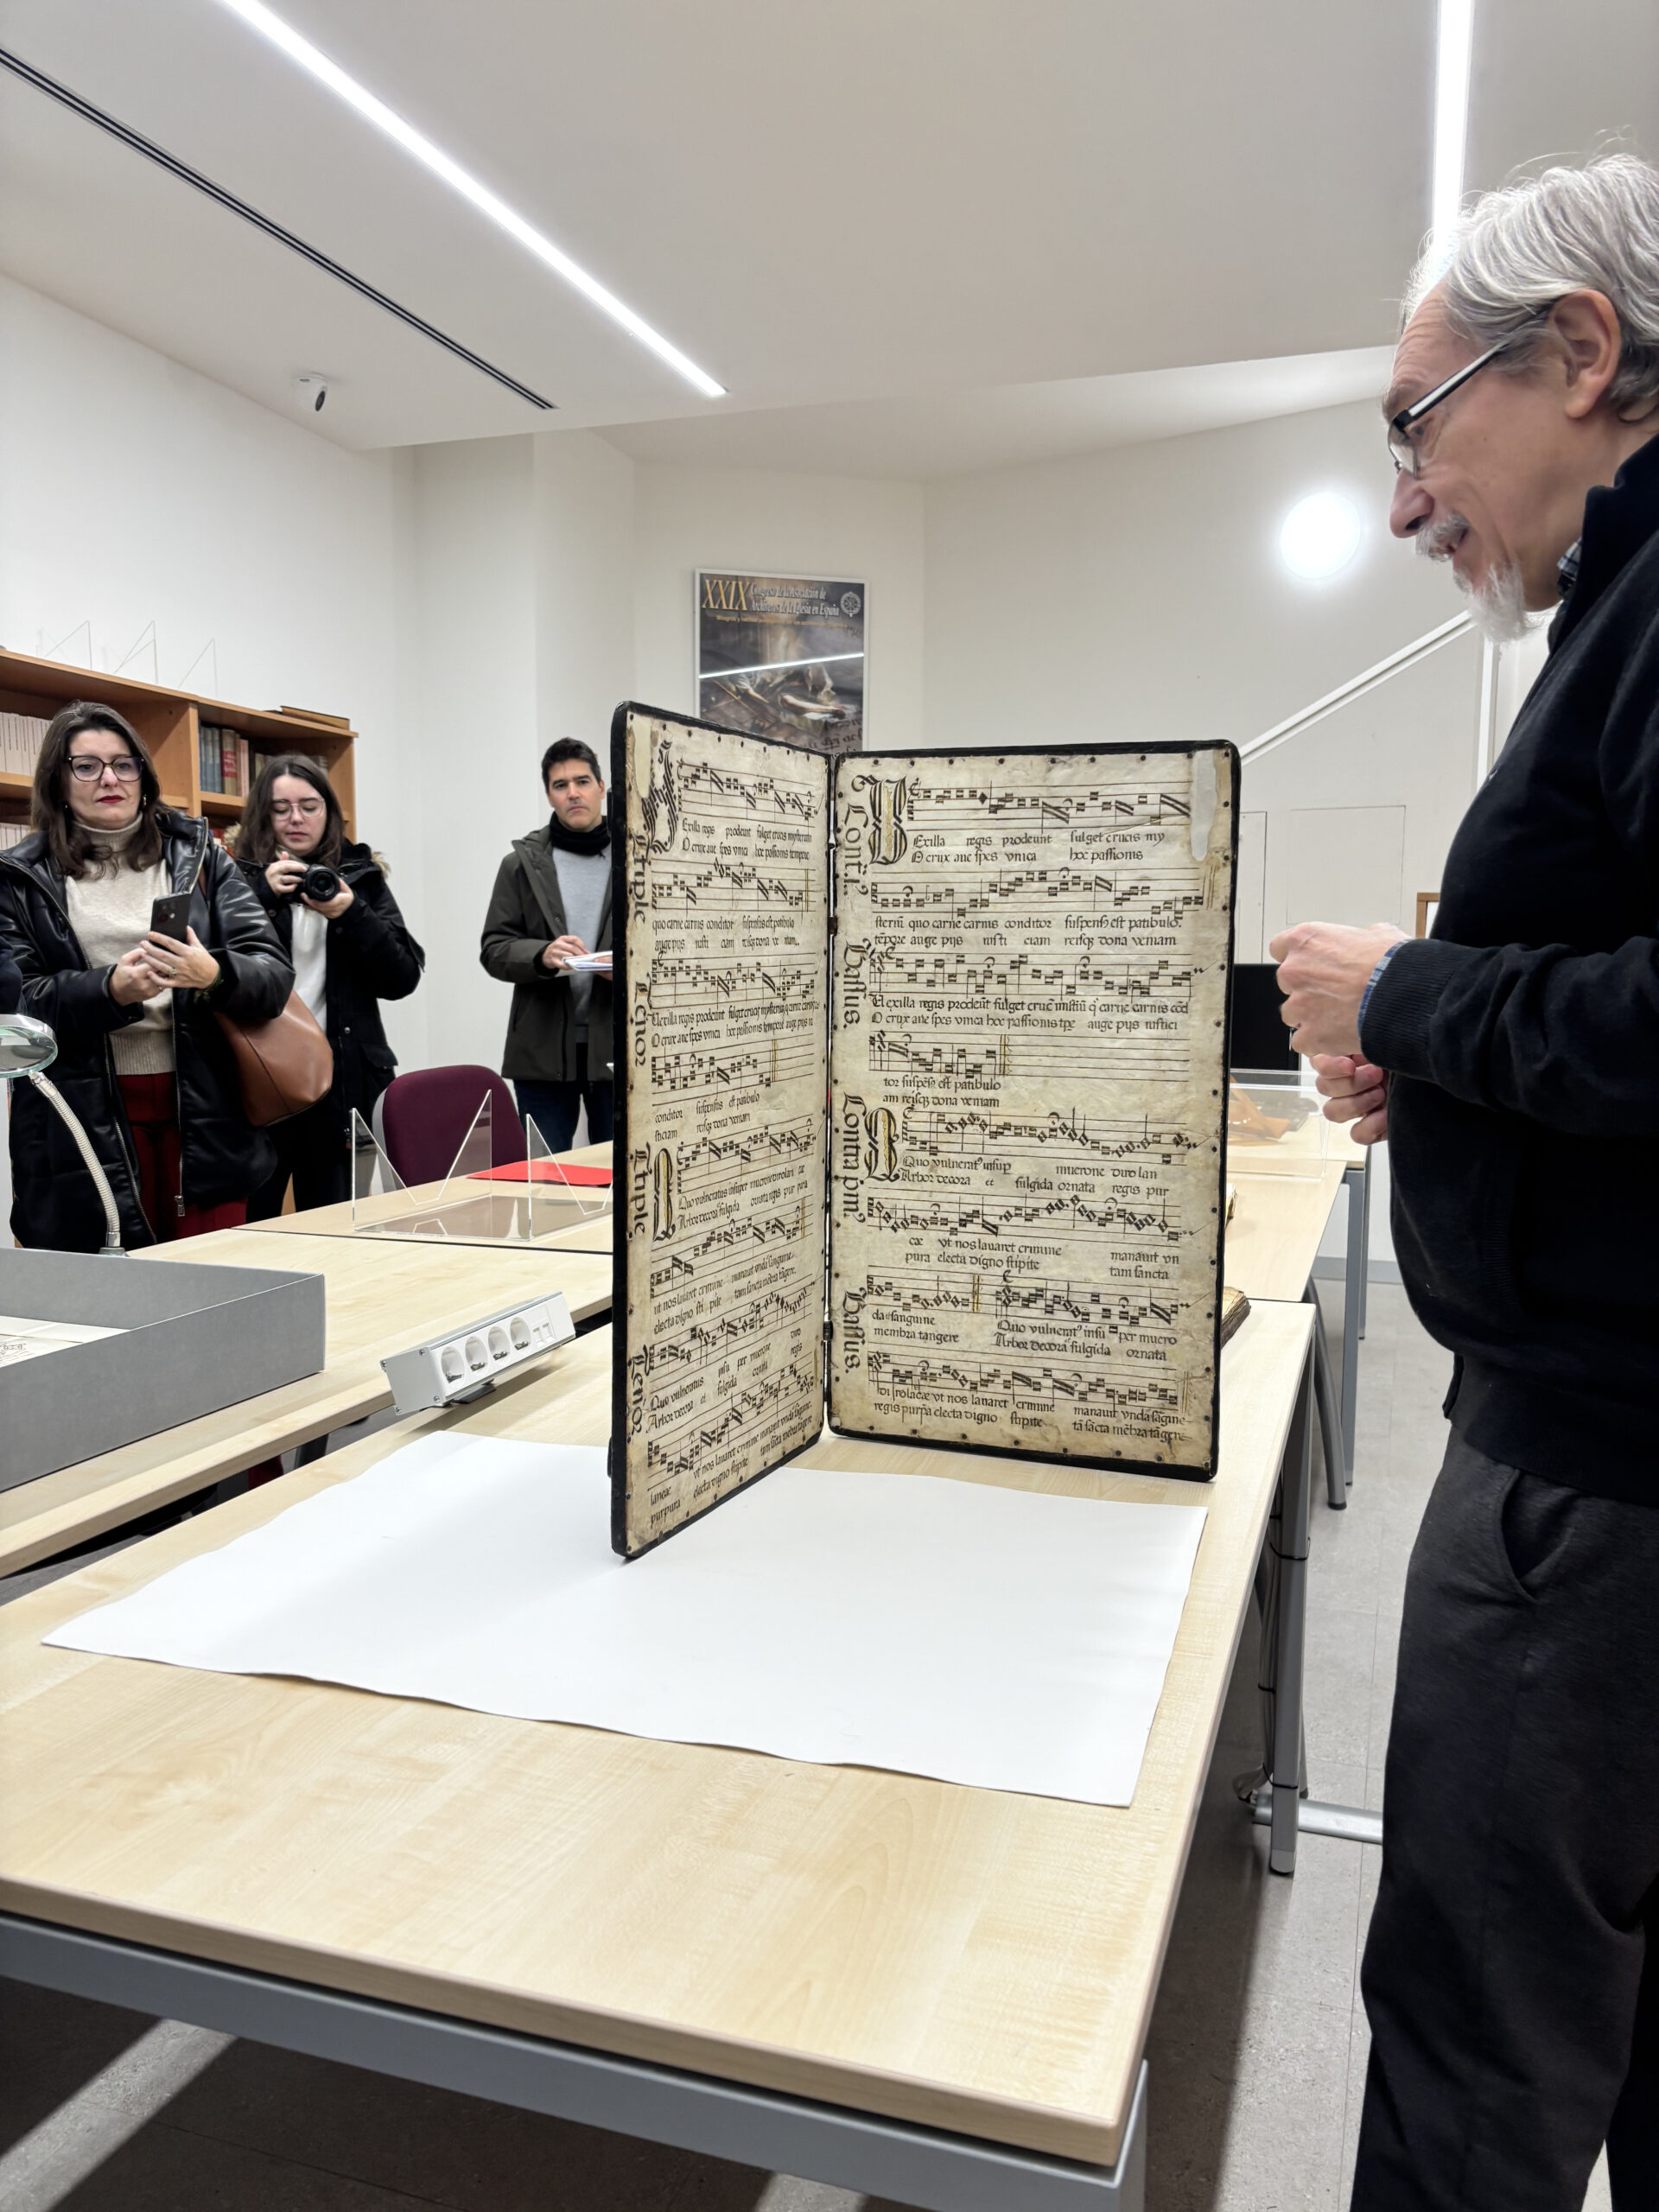 XXIX Congreso de la Asociación de
Archiveros de la Iglesia en España
Triple
Exilla regis prodeunt fulget crucis mysterium
O crux aue spes vnica hoc passionis tempore
quo carne carnis conditor suspensus est patibulo
auge pijs iusti ciam reisq; dona ve niam
Tenor
Vexilla regis prodeunt fulget crucis mysterium q carne carnis
O crux aue spes vnica hoc passionis tempore auge pijs iu
conditor suspensus est patibulo
sticiam reisq; dona veniam
Triple
Quo vulneratus insuper mucrone diro lan ce
Arbor decora fulgida ornata regis pur pura
ut nos lauaret crimine manauit vnda sanguine
electa digno sti pite tam sancta mēbra tāgere
Tenor
Quo vulneratus insu per mucrone diro
Arbor decora et fulgida ornata regis
lanceae vt nos lauaret crimine manauit vnda sāguine
purpura electa digno stipite tam sācta mēbra tāgere
Cont.
Vexilla regis prodeunt fulget crucis my
O crux aue spes vnica hoc passionis
steriū quo carne carnis conditor suspensꝰ est patibulo.
tēpore auge pijs iusti ciam reisq; dona veniam
Bassus.
Vexilla regis prodeūt fulget crucꝭ mistiū q̄ carne carnis cōd
O crux aue spes vnica hoc passionis tp̄e auge pijs iustici
itor suspēsꝰ est patibulo
am reisq; dona veniam
Contra
Quo vulneratꝰ insup mucrone diro lan
Arbor decora et fulgida ornata regis pur
cæ vt nos lauaret crimine manauit vn
pura electa digno stipite tam sancta
da sanguine
membra tangere
Bassus
Quo vulneratꝰ insu per mucro
Arbor decora fulgida ornata
vt nos lauaret crimine manauit vnda sāguine
regis purp̄a electa digno stipite tā sācta mēbra tāgere